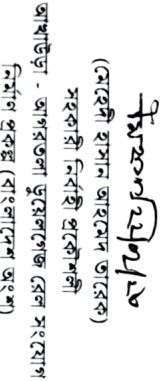 (মেহেদী হাসান আহমেদ তারেক)
সহকারী নির্বাহী প্রকৌশলী
আখাউড়া - আগরতলা ডুয়েলগেজ রেল সংযোগ
নির্মাণ প্রকল্প (বাংলাদেশ অংশ)